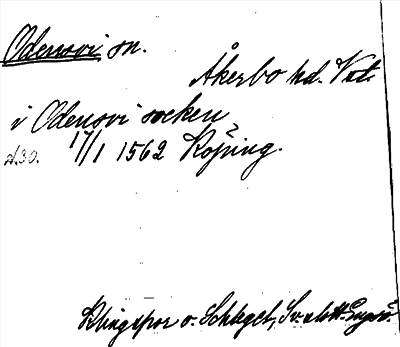 Odensvi sn.
Åkerbo hd. Vstl.
i Odensvi socken
17/1 1562 Köping.
d. 30.
Klingspor o. Schlegel, Sv. slott Engsö.